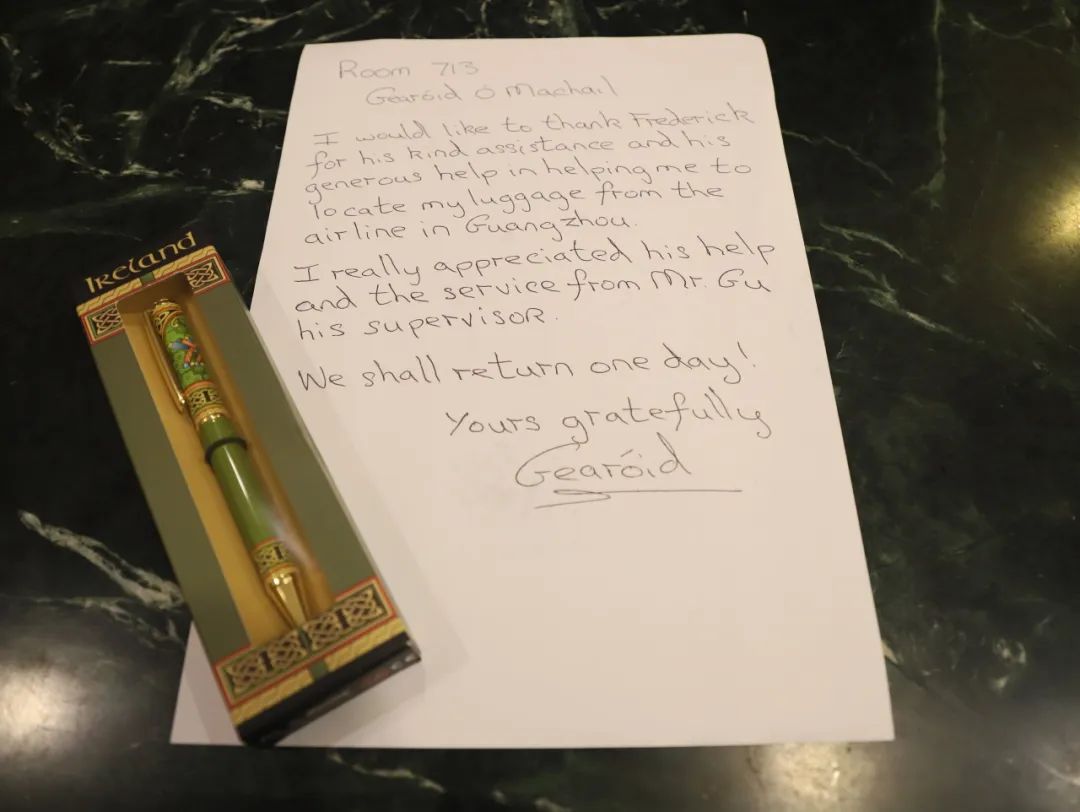 Room 713
Gearóid Ó Machail
I would like to thank Frederick
for his kind assistance and his
generous help in helping me to
locate my luggage from the
airline in Guangzhou.
I really appreciated his help
and the service from Mr. Gu
his supervisor.
We shall return one day!
Yours gratefully
Gearóid
IRELAND